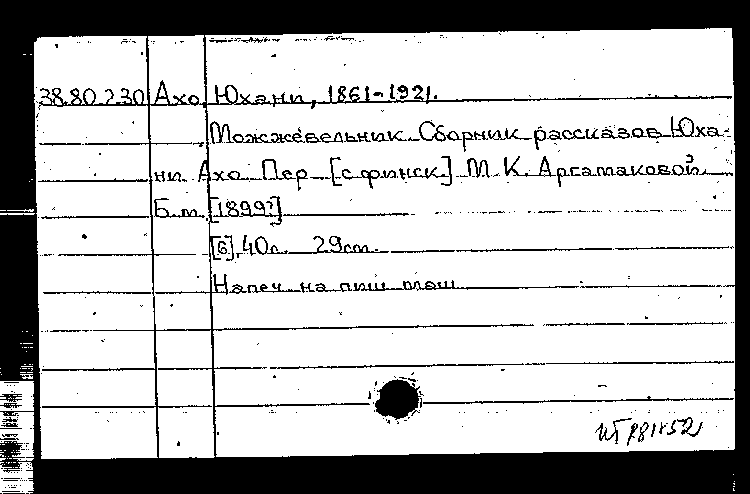 38.80.230 Ахо, Юхани, 1861-1921.
Можжевельник. Сборник рассказов Юха-
ни Ахо. Пер. [с финск.] М. К. Аргамаковой.
Б. м. [1899?]
[6], 40л. 29см.
Напеч. на пиш. маш.